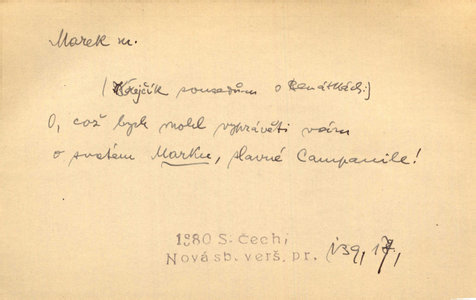 Marek m.
(Krejčík sousedům o Benátkách:)
O, což bych mohl vypravěti vám
o svatém Marku, slavné Campanile!
1880 S. Čech,
Nová sb. verš. pr. 139, 17,